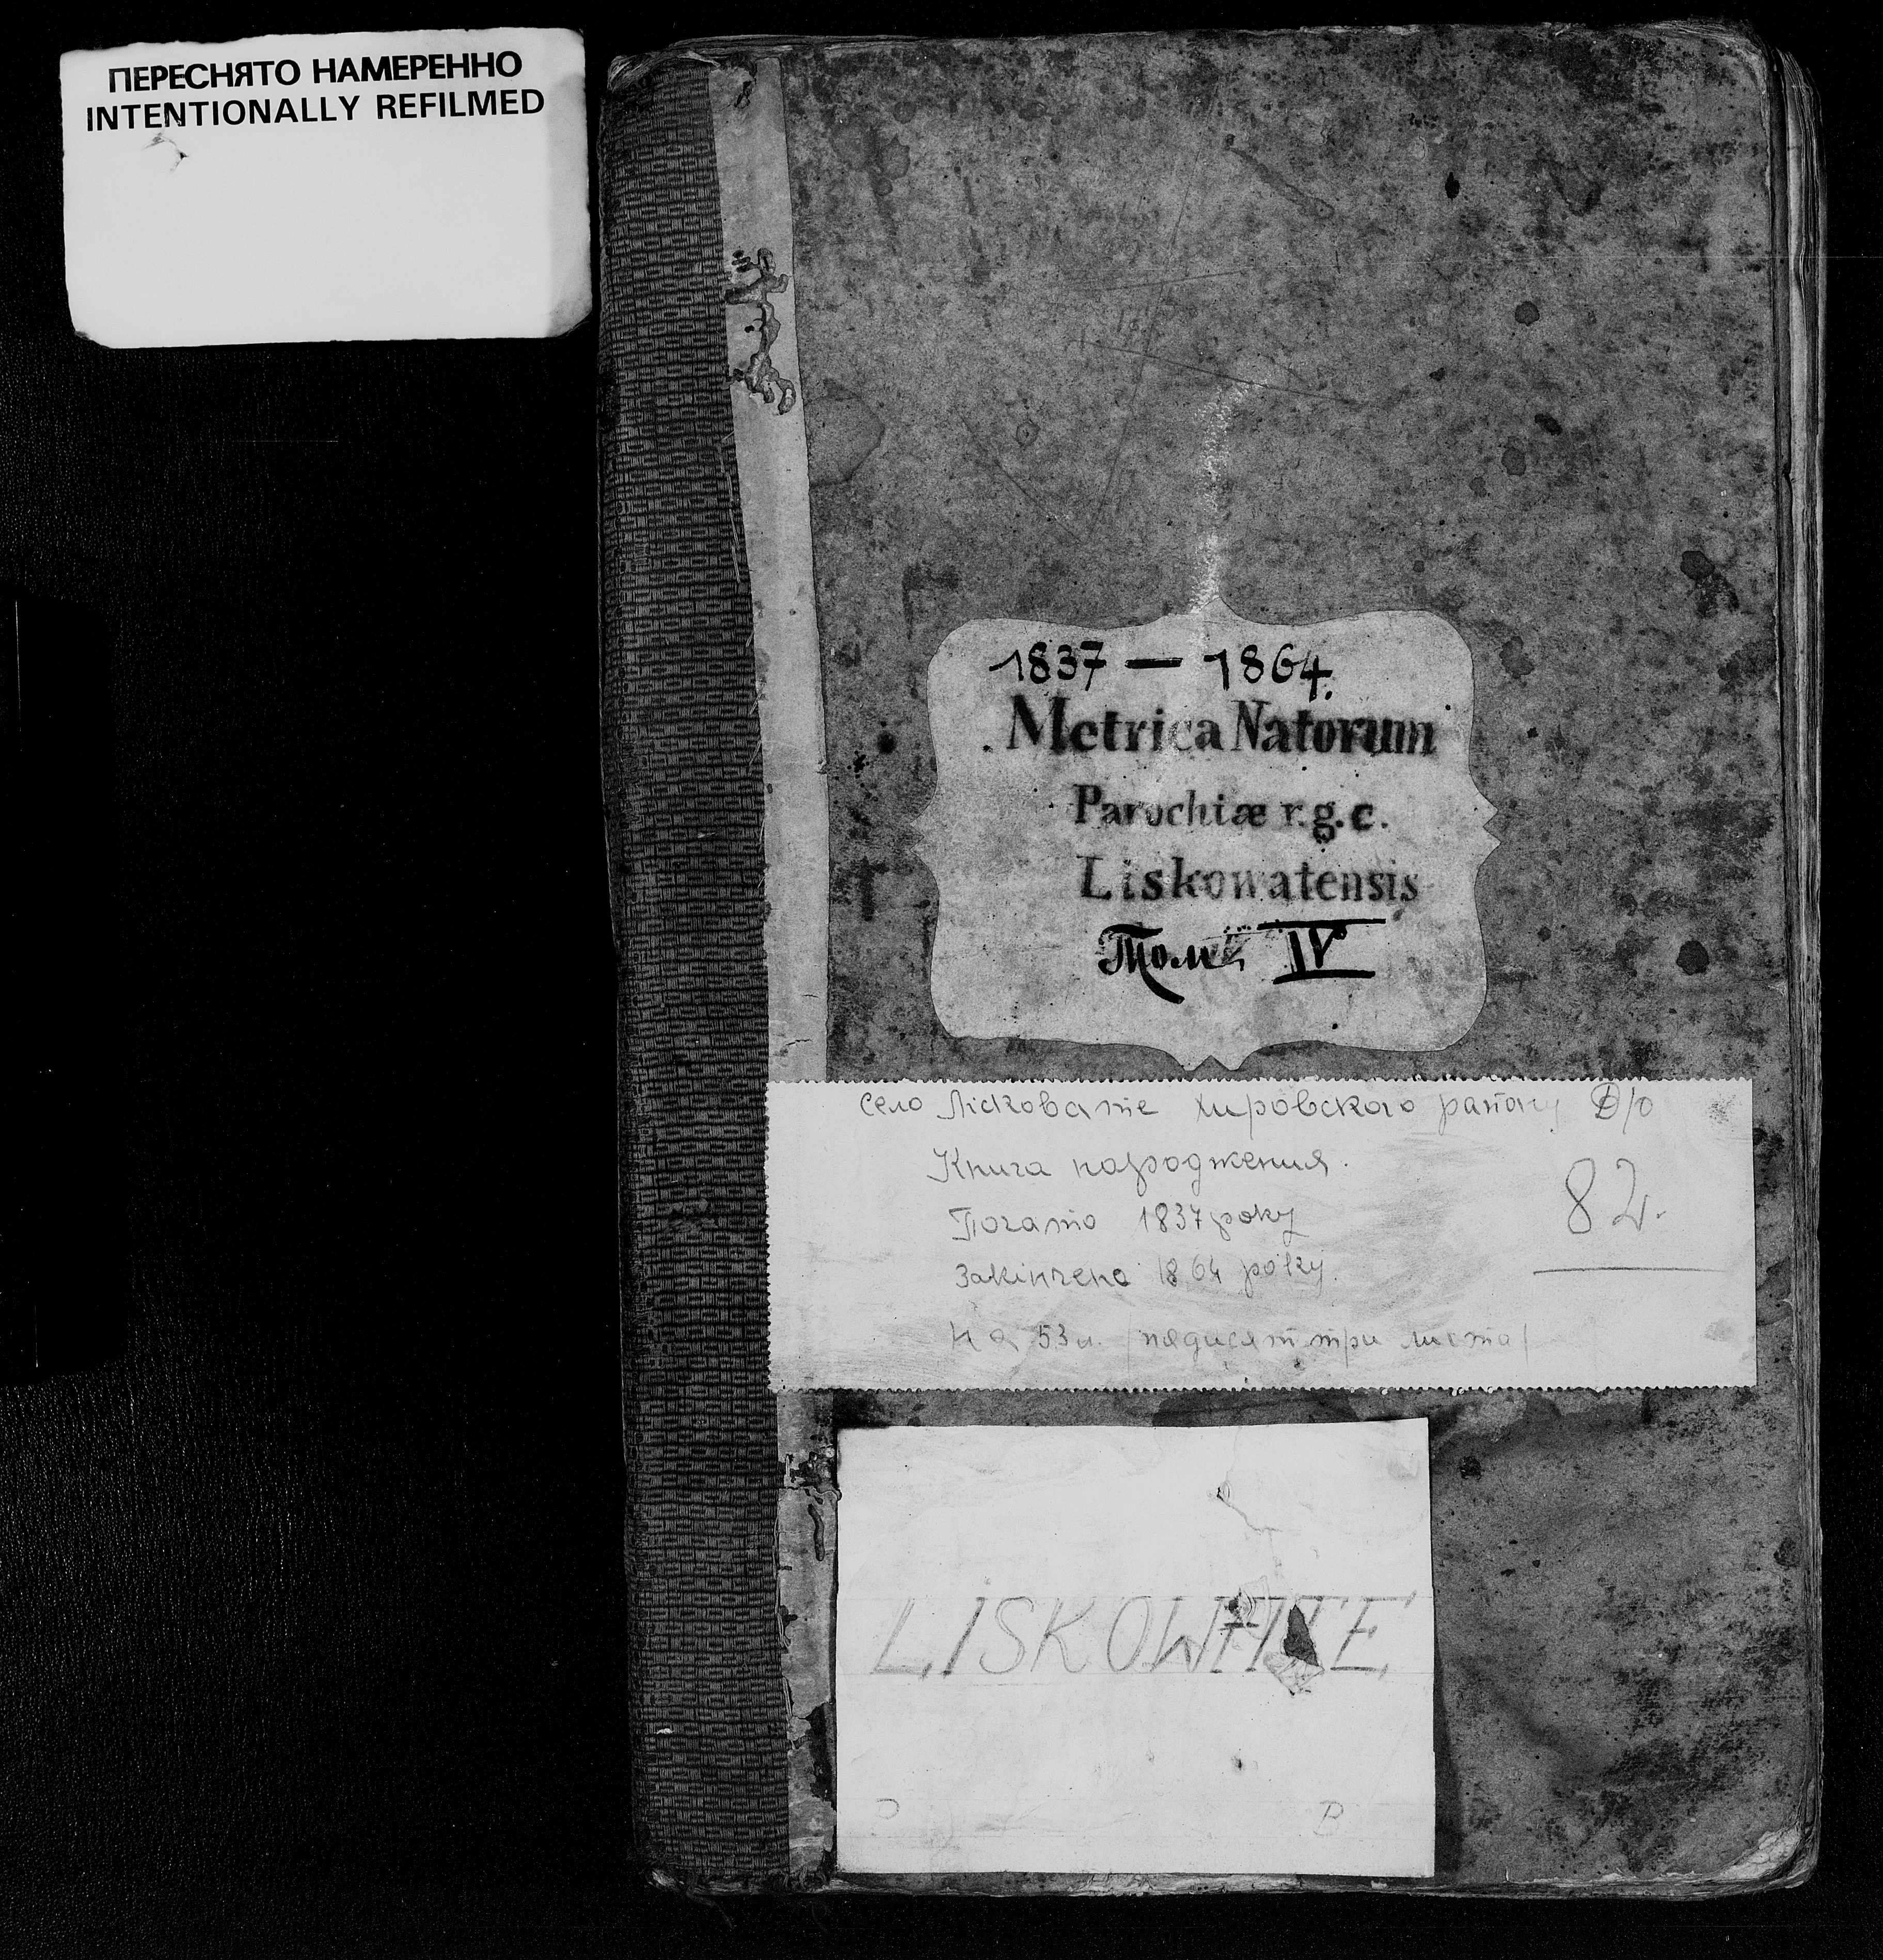 ПЕРЕСНЯТО НАМЕРЕННО
INTENTIONALLY REFILMED
1837 — 1864.
Metrica Natorum
Parochiæ r.g.c.
Liskowatensis
Томъ IV
село Лісковате Хировского району Д/о
Книга народження.
82.
Почато 1837 року
Закінчено 1864 року.
На 53 л. /пядисят три листа/
LISKOWATE
B